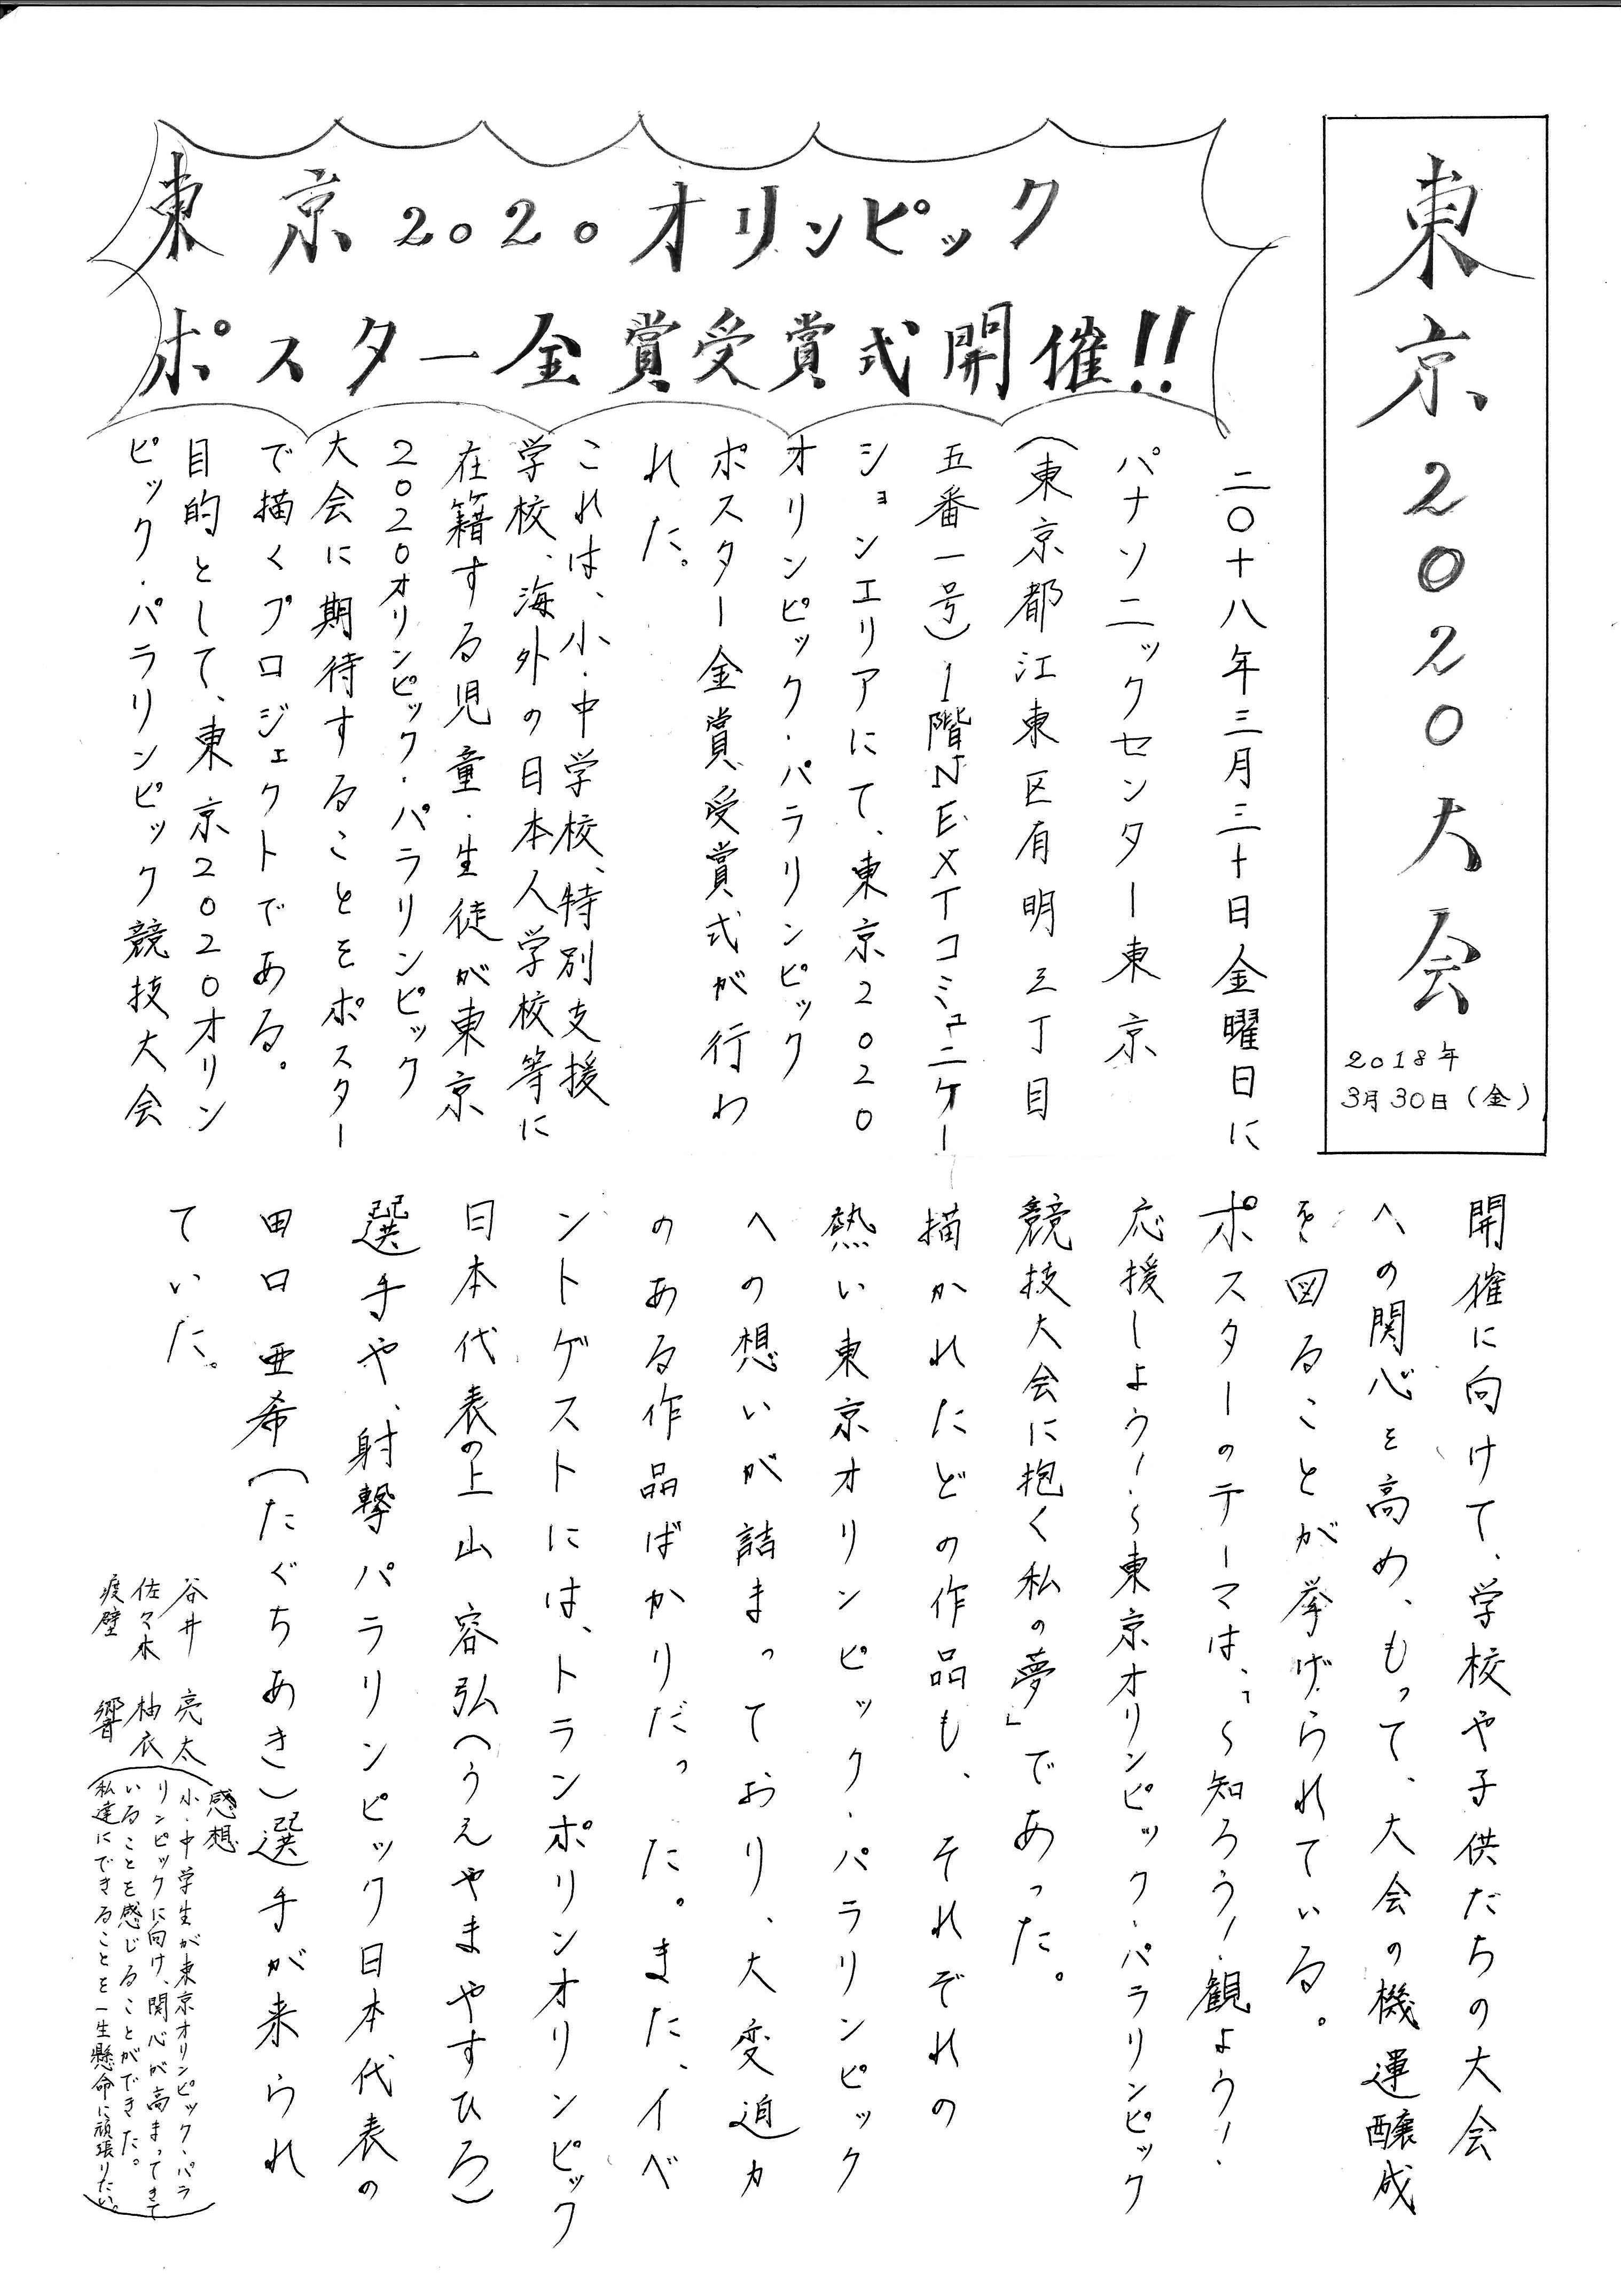 東京2020大会
2018年
3月30日(金)
東京2020オリンピック
ポスター金賞受賞式開催!!
二〇十八年三月三十日金曜日に
パナソニックセンター東京
(東京都江東区有明三丁目
五番一号)1階NEXTコミュニケー
ションエリアにて、東京2020
オリンピック・パラリンピック
ポスター金賞受賞式が行わ
れた。
これは、小・中学校、特別支援
学校、海外の日本人学校等に
在籍する児童・生徒が東京
2020オリンピック・パラリンピック
大会に期待することをポスター
で描くプロジェクトである。
目的として、東京2020オリン
ピック・パラリンピック競技大会
開催に向けて、学校や子供だちの大会
への関心を高め、もって、大会の機運醸成
を図ることが挙げられている。
ポスターのテーマは、「~知ろう!観よう!
応援しよう!~東京オリンピック・パラリンピック
競技大会に抱く私の夢」であった。
描かれたどの作品も、それぞれの
熱い東京オリンピック・パラリンピック
への想いが詰まっており、大変迫力
のある作品ばかりだった。また、イベ
ントゲストには、トランポリンオリンピック
日本代表の上山 容弘(うえやまやすひろ)
選手や、射撃パラリンピック日本代表の
田口 亜希(たぐちあき)選手が来られ
ていた。
谷井 亮太
佐々木 柚衣
壁 響
感想
小・中学生が東京オリンピック・パラ
リンピックに向け、関心が高まってきて
いることを感じることができた。
私達にできることを一生懸命に頑張りたい。